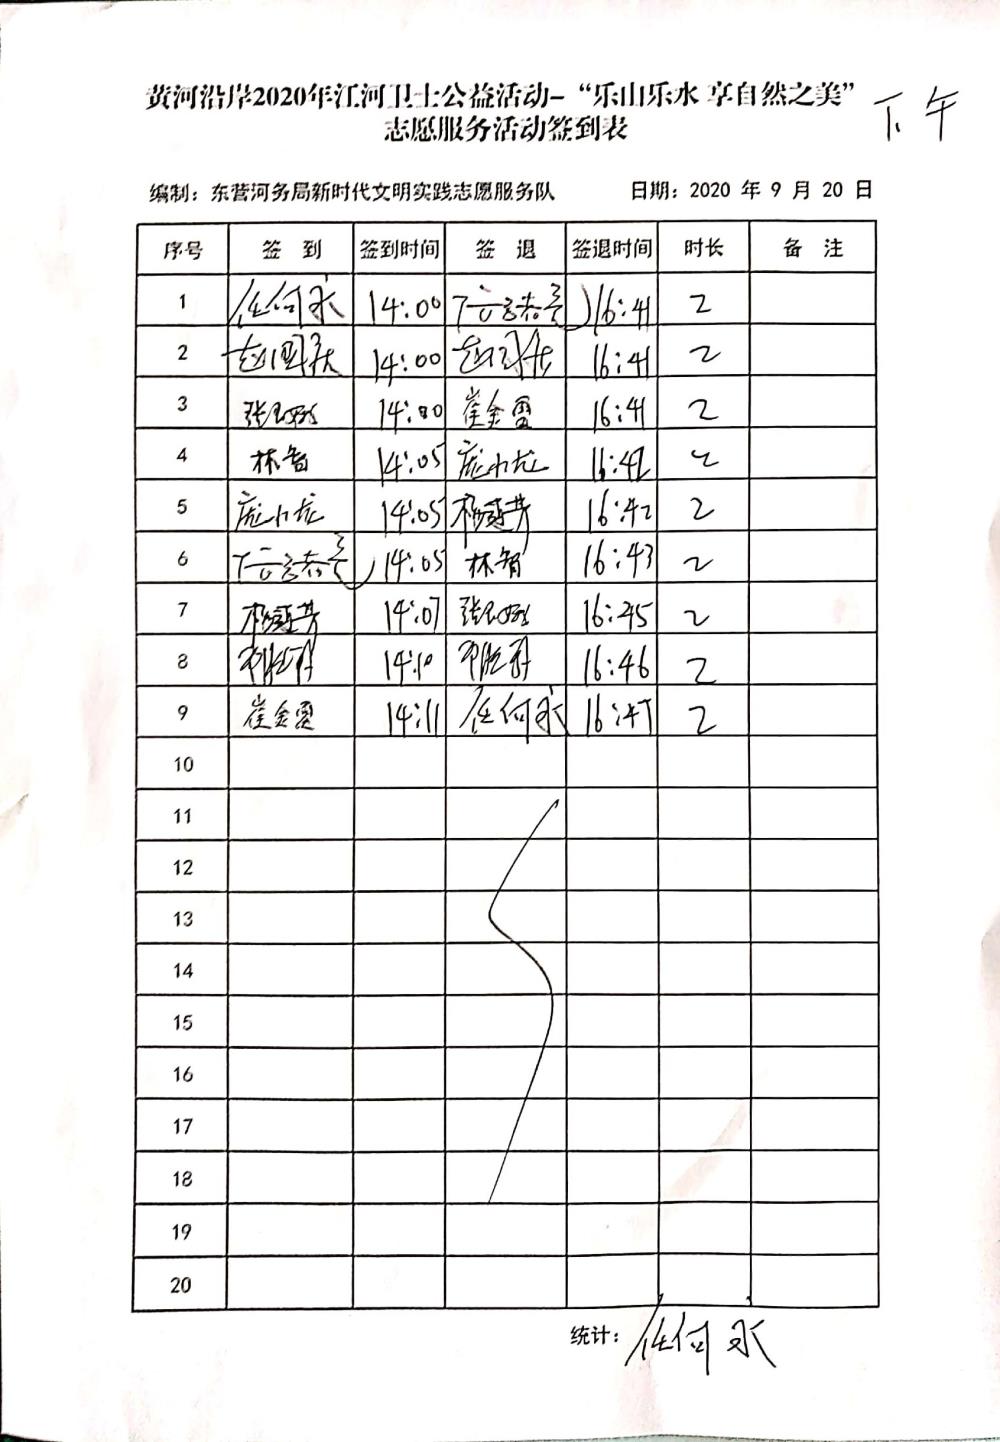 黄河沿岸2020年江河卫士公益活动-“乐山乐水 享自然之美”
志愿服务活动签到表
下午
编制：东营河务局新时代文明实践志愿服务队 日期：2020 年 9 月 20 日
序号 签 到 签到时间 签 退 签退时间 时长 备 注
1 任何永 14:00 16:41 2
2 14:00 16:41 2
3 14:00 崔金雷 16:41 2
4 林智 14:05 庞小龙 16:42 2
5 庞小龙 14:05 16:42 2
6 14:05 林智 16:43 2
7 14:07 16:45 2
8 14:10 16:46 2
9 崔金雷 14:11 任何永 16:47 2
10
11
12
13
14
15
16
17
18
19
20
统计：任何永